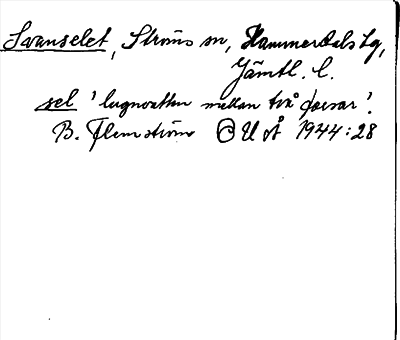 Svanselet, Ströms sn, Hammerdals tg,
Jämtl. l.
sel 'lugnvatten mellan två forsar'.
B. Flemström i UoÅ 1944:28